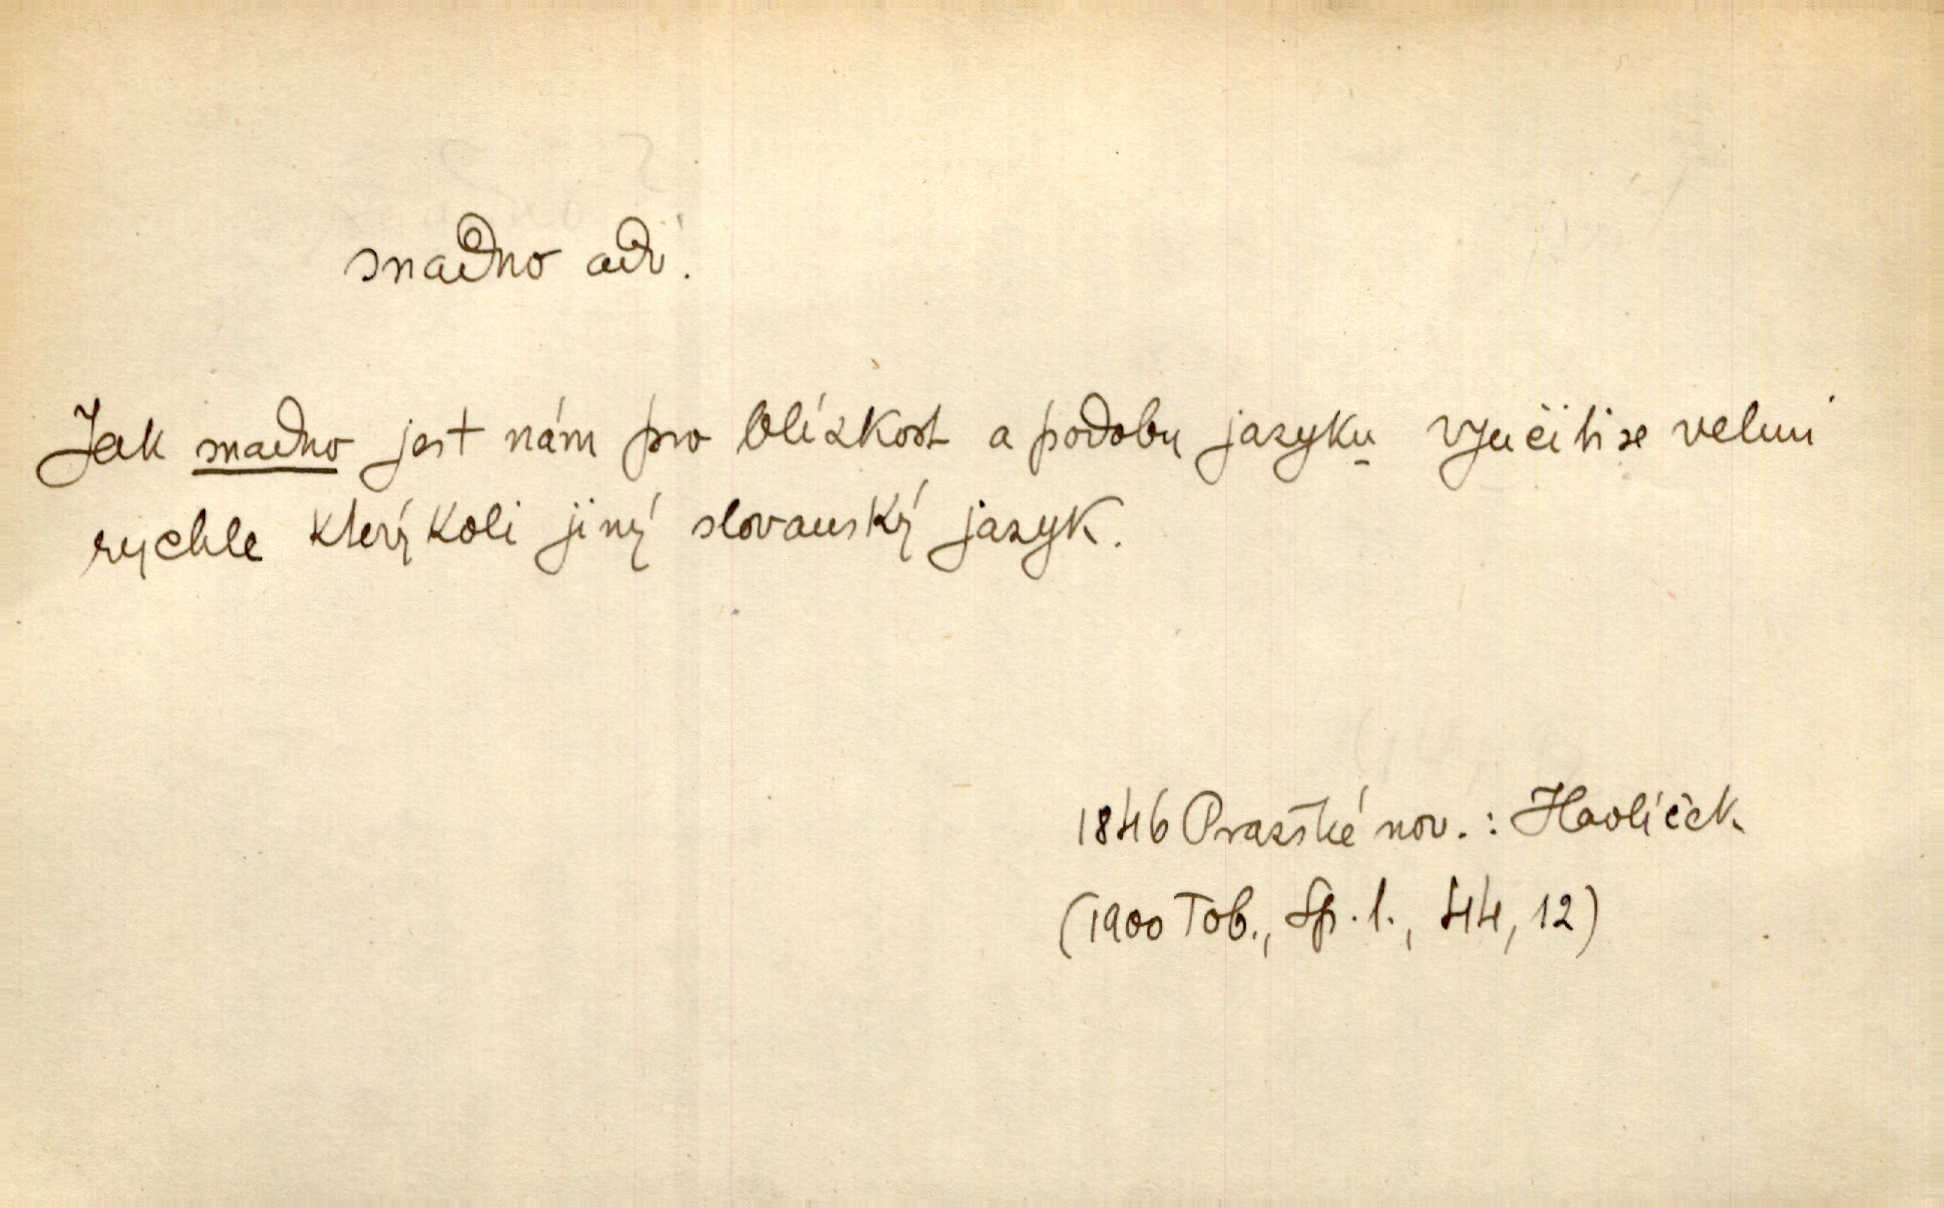 snadno adv.
Jak snadno jest nám pro blízkost a podobu jazyku vyučiti se velmi
rychle kterýkoli jiný slovanský jazyk.
1846 Pražské nov.: Havlíček
(1900 Tob., Sp. I., 44, 12)